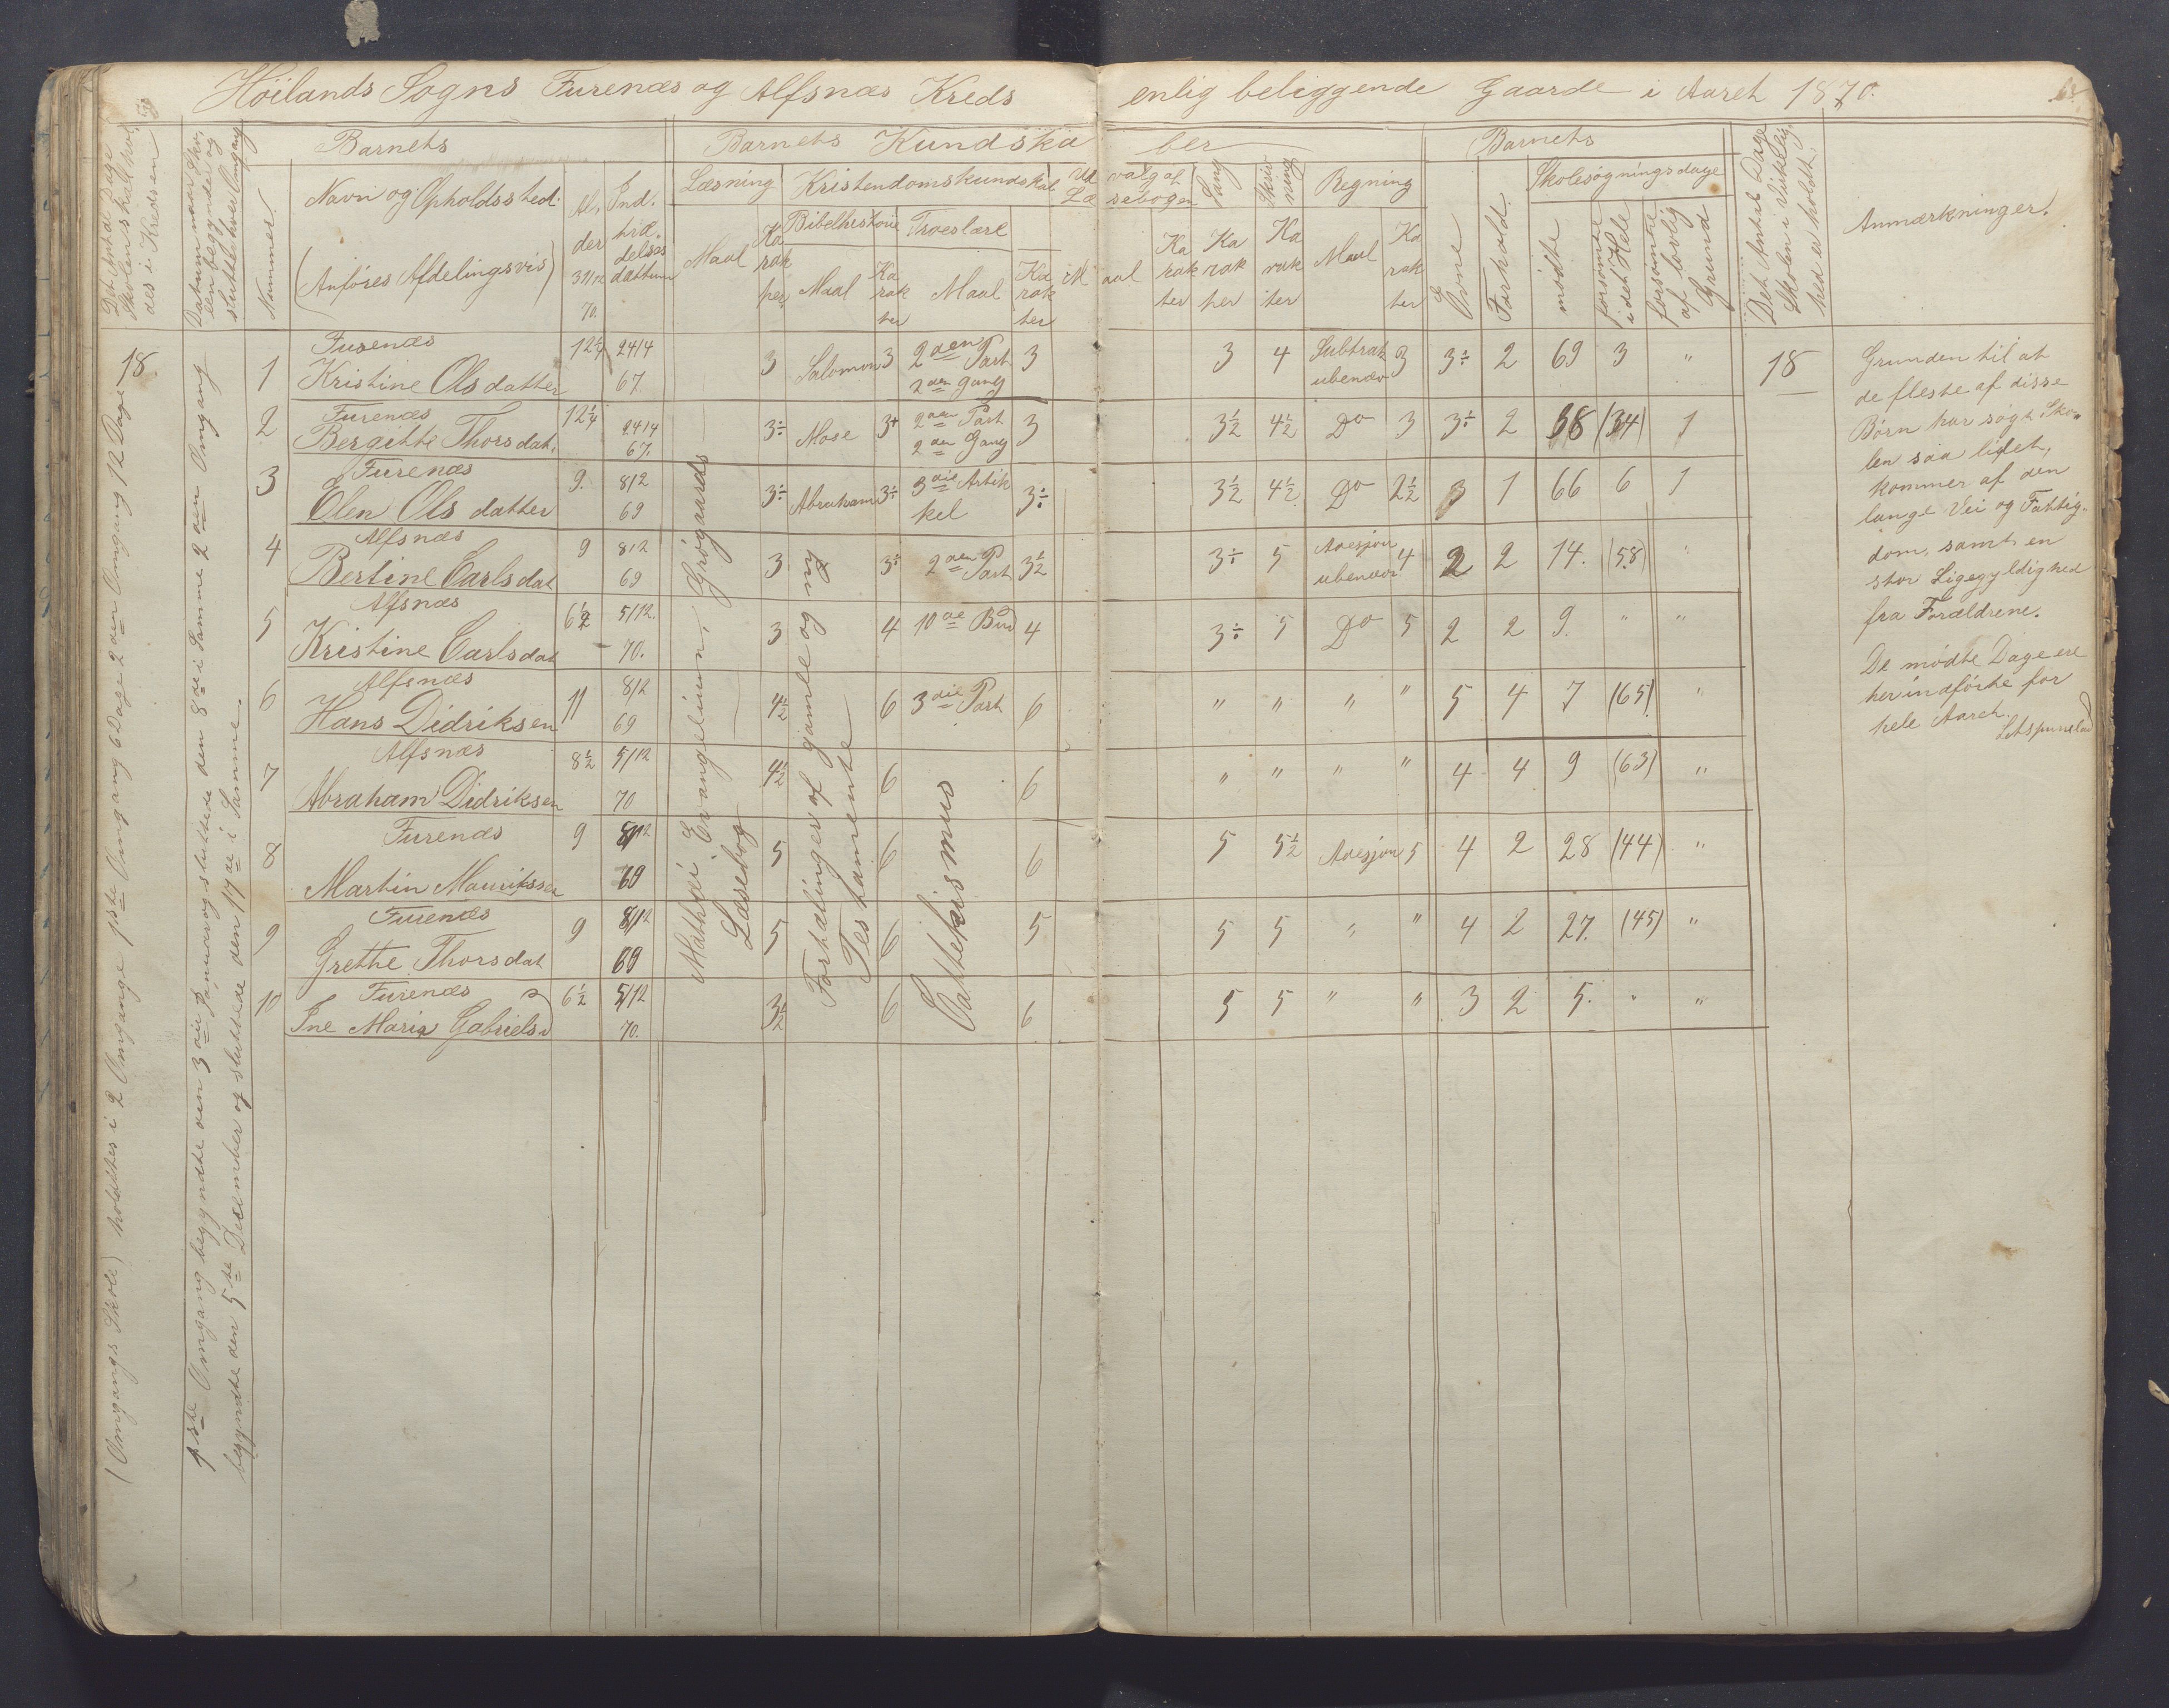 Höilands Sogns Furenæs og Alfsnæs Kreds enlig beliggende Gaarde i Aaret 1870.
Det Antal Dage Skolen skal holdes i Kredsen
Datum naar Skolen begynder og slutter hver Omgang
Nummer.
Barnets
Navn og Opholdssted.
(Anföres Afdelingsvis)
Alder 31/12 70.
Indtrædelses dattum
Barnets Kundskaber
Læsning
Maal
Karakter
Kristendomskundskab
Bibelhistorie
Maal
Karakter
Troeslære
Maal
Karakter
Udvalg af Læsebogen
Maal
Karakter
Sang
Karakter
Skrivning
Karakter
Regning
Maal
Karakter
Barnets
Evne
Forhold.
Skolesøgningsdage
mödte
forsömte i det Hele
forsömte af lovlig Grund
Det Antal Dage Skolen i Virkelighed er holdt.
Anmærkninger.
18.
(Omgangs Skole) holdtes i 2 Omgange 1ste Omgang 6 Dage 2den Omgang 12 Dage
1ste Omgang begyndte den 3die Januar og sluttede den 8de i Samme 2den Omgang
begyndte den 5te December og sluttede den 17de i Samme.
Matthæi Evangelium, Grögaards
Læsebog
Fortællinger af gamle og ny
Testamente
Cattekismus
1 Furenæs
Kristine Olsdatter 12 1/4 24/4 67. 3 Salomon 3 2den Part 2den gang 3 3 4 Subtrak ubenævn 3 3÷ 2 69 3 " 18
2 Furenæs
Bergitte Thorsdat. 12 1/4 24/4 67. 3÷ Mose 3+ 2den Part 2den Gang 3 3½ 4½ Do 3 3÷ 2 38 (34) 1
3 Furenæs
Elen Olsdatter 9. 8/12 69 3÷ Abraham 3÷ 3die Artikkel 3÷ 3½ 4½ Do 2½ 3 1 66 6 1
4 Alfsnæs
Bertine Carlsdat 9 8/12 69 3 3÷ 2den Part 3½ 3÷ 5 Adesjon ubenævn 4 2 2 14. (58) "
5 Alfsnæs
Kristine Carlsdat 6½ 5/12. 70. 3 4 10de Bud 4 3÷ 5 Do 5 2 2 9. " "
6 Alfsnæs
Hans Didriksen 11 8/12 69 4½ 6 3die Part 6 " " " " 5 4 7 (65) "
7 Alfsnæs
Abraham Didriksen 8½ 5/12 70 4½ 6 6 " " " " 4 4 9 (63) "
8 Furenæs
Martin Mauritssen 9 8/12 69 5 6 6 5 5½ Adesjon 5 4 2 28 (44) "
9 Furenæs
Grethe Thorsdat 9 8/12 69 5 6 5 5 5 " " 4 2 27. (45) "
10 Furenæs
Ine Maria Gabrielsd 6½ 5/12 70. 3½ 6 6 5 5 " " 3 2 5. " "
Grunden til at
de fleste af disse
Börn har sögt Sko-
len saa lidet,
kommer af den
lange Vei og Fattig-
dom, samt en
stor Ligegyldighed
fra Forældrene.
De mödte Dage ere
her indförte for
hele Aaret.